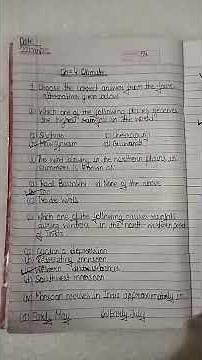 Date:
Ch-4 Climate
1. Choose the correct answer from the four alternatives given below
i) Which one of the following places receives
the highest rainfall in the world?
a) Silchar b) Cherrapunji
c) Mawsynram d) Guwahati
ii) The wind blowing in the northern plains in
summers is known as
a) Kaal Baisakhi None of the above
b) Loo
c) Trade winds
Which one of the following causes rainfall
during winters in the north-western part
of India
a) Cyclonic depression
b) Retreating monsoon
c) Western disturbances
d) Southwest monsoon
iv) Monsoon arrives in India approximately in
(a) Early May b) Early July